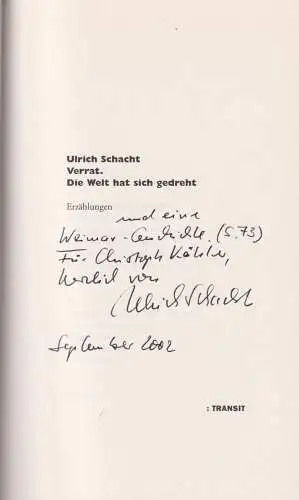 Ulrich Schacht
Verrat.
Die Welt hat sich gedreht
Erzählungen
und eine
Weimar-Geschichte. (S. 73)
Für Christoph Kähler,
herzlich von
Ulrich Schacht
September 2002
: TRANSIT